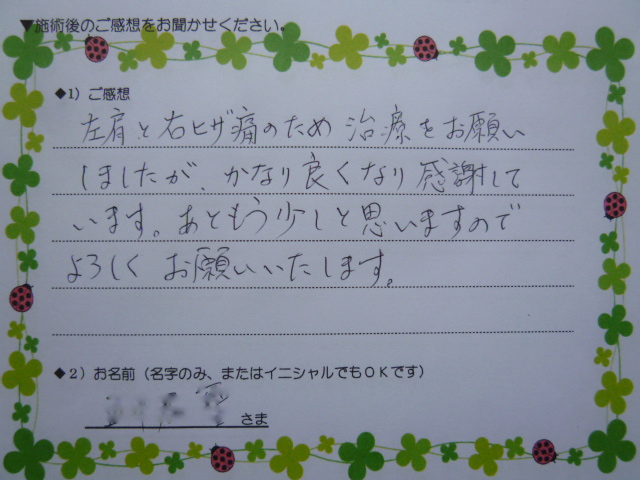 ▼施術後のご感想をお聞かせください。
◆1）ご感想
左肩と右ヒザ痛のため 治療をお願い
しましたが、かなり良くなり 感謝して
います。あともう少しと思いますので
よろしく お願いいたします。
◆2）お名前（名字のみ、またはイニシャルでもＯＫです）
さま